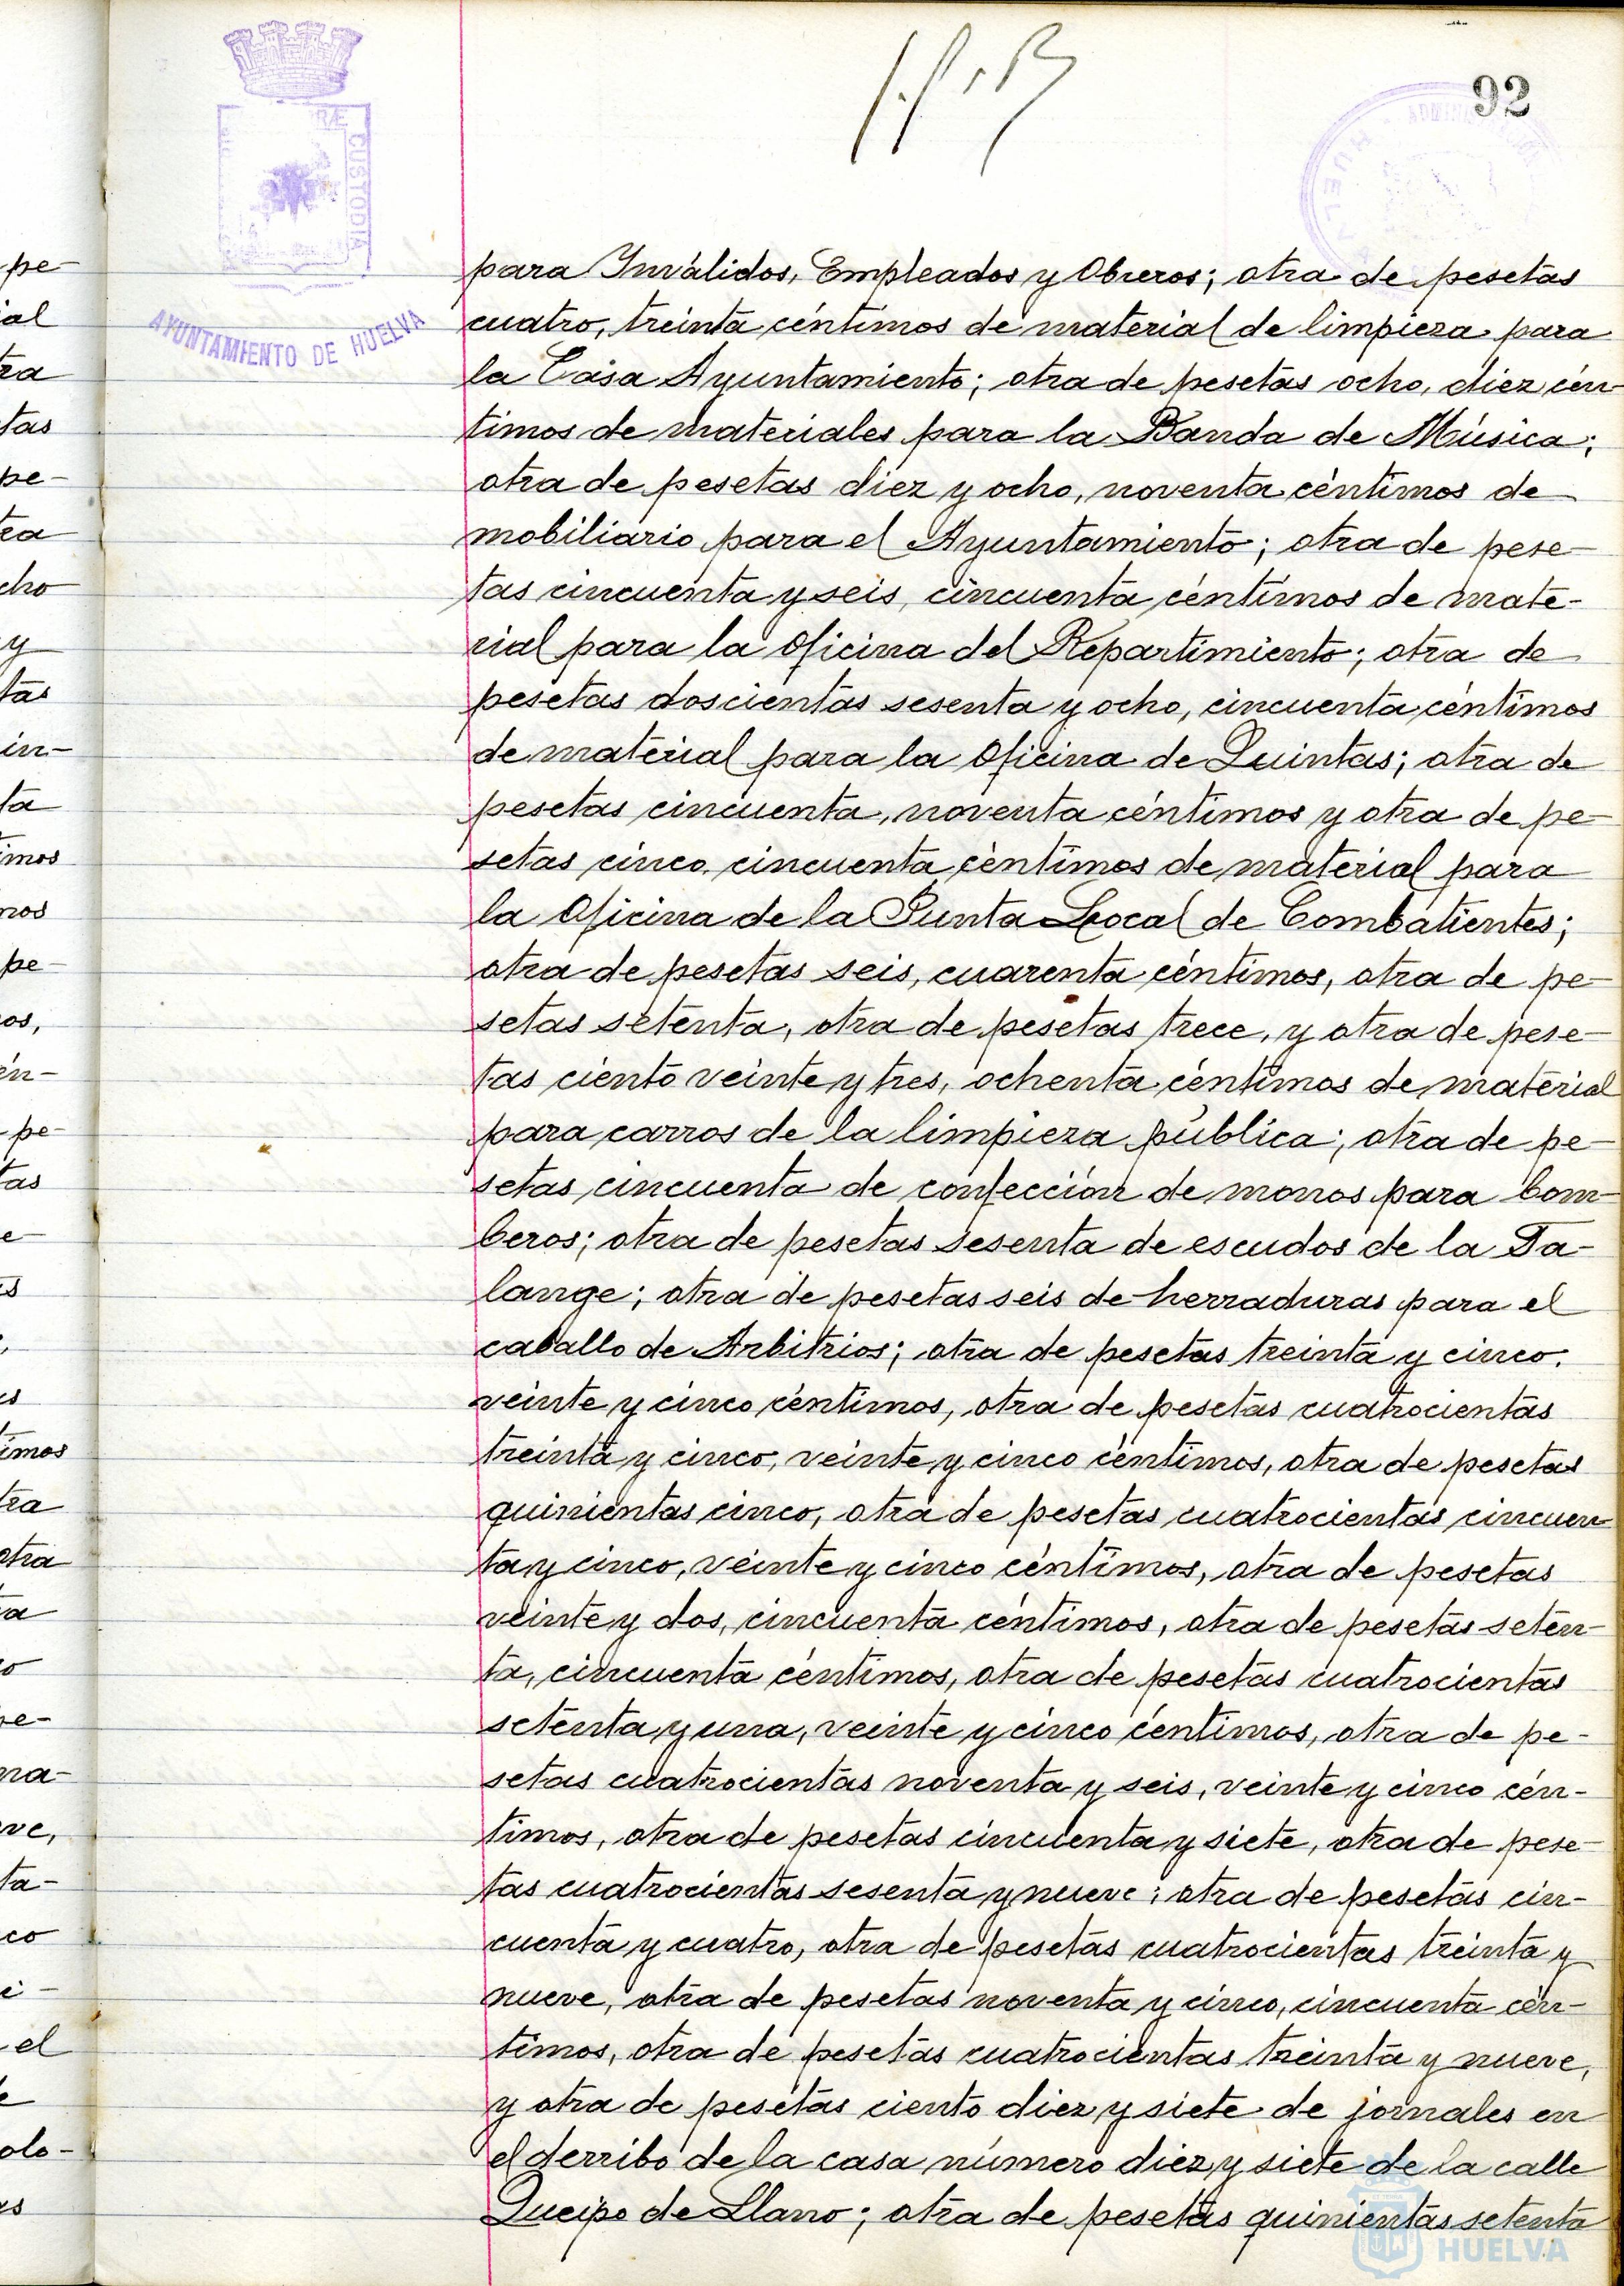 92
RÆ CUSTODIA
AYUNTAMIENTO DE HUELVA
para Inválidos, Empleados y Obreros; otra de pesetas
cuatro, treinta céntimos de material de limpieza para
la Casa Ayuntamiento; otra de pesetas ocho, diez cén
timos de materiales para la Banda de Música;
otra de pesetas diez y ocho, noventa céntimos de
mobiliario para el Ayuntamiento; otra de pese-
tas cincuenta y seis, cincuenta céntimos de mate-
rial para la Oficina del Repartimiento; otra de
pesetas doscientas sesenta y ocho, cincuenta céntimos
de material para la Oficina de Quintas; otra de
pesetas cincuenta, noventa céntimos y otra de pe-
setas cinco, cincuenta céntimos de material para
la Oficina de la Junta Local de Combatientes;
otra de pesetas seis, cuarenta céntimos, otra de pe-
setas setenta, otra de pesetas trece, y otra de pese-
tas ciento veinte y tres, ochenta céntimos de material
para carros de la limpieza pública; otra de pe-
setas cincuenta de confección de monos para bom-
beros; otra de pesetas sesenta de escudos de la Fa-
lange; otra de pesetas seis de herraduras para el
caballo de Arbitrios; otra de pesetas treinta y cinco,
veinte y cinco céntimos, otra de pesetas cuatrocientas
treinta y cinco, veinte y cinco céntimos, otra de pesetas
quinientas cinco, otra de pesetas cuatrocientas cincuen
ta y cinco, veinte y cinco céntimos, otra de pesetas
veinte y dos, cincuenta céntimos, otra de pesetas seten-
ta, cincuenta céntimos, otra de pesetas cuatrocientas
setenta y una, veinte y cinco céntimos, otra de pe-
setas cuatrocientas noventa y seis, veinte y cinco cén-
timos, otra de pesetas cincuenta y siete, otra de pese-
tas cuatrocientas sesenta y nueve; otra de pesetas cin-
cuenta y cuatro, otra de pesetas cuatrocientas treinta y
nueve, otra de pesetas noventa y cinco, cincuenta cén-
timos, otra de pesetas cuatrocientas treinta y nueve,
y otra de pesetas ciento diez y siete de jornales en
el derribo de la casa número diez y siete de la calle
Queipo de Llano; otra de pesetas quinientas setenta
HUELVA